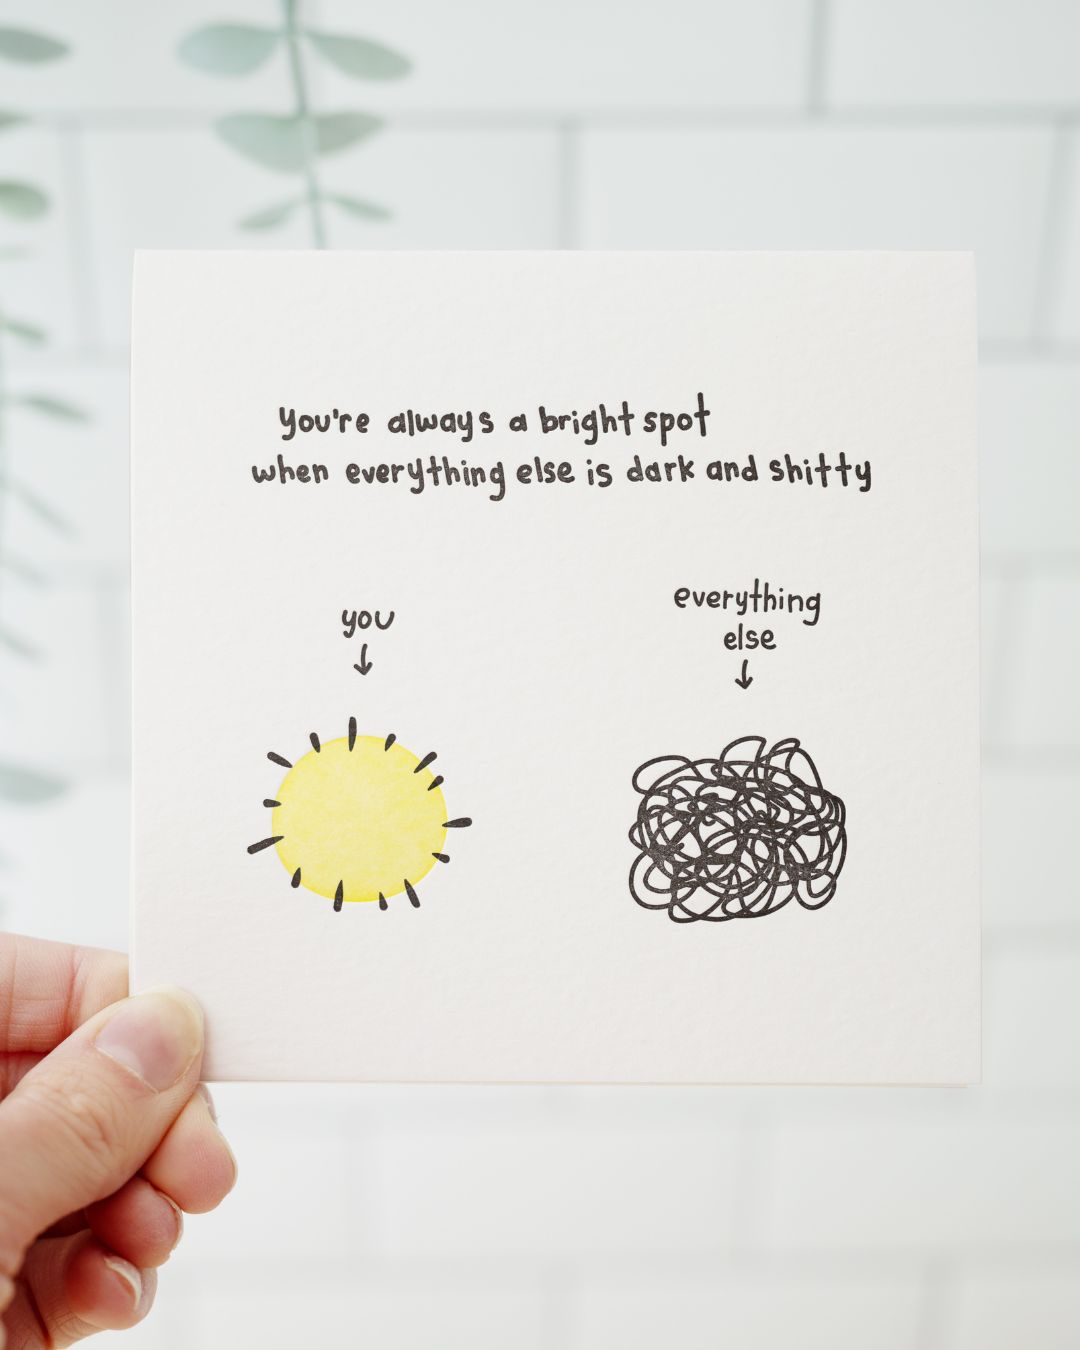 you're always a bright spot
when everything else is dark and shitty
you
everything
else